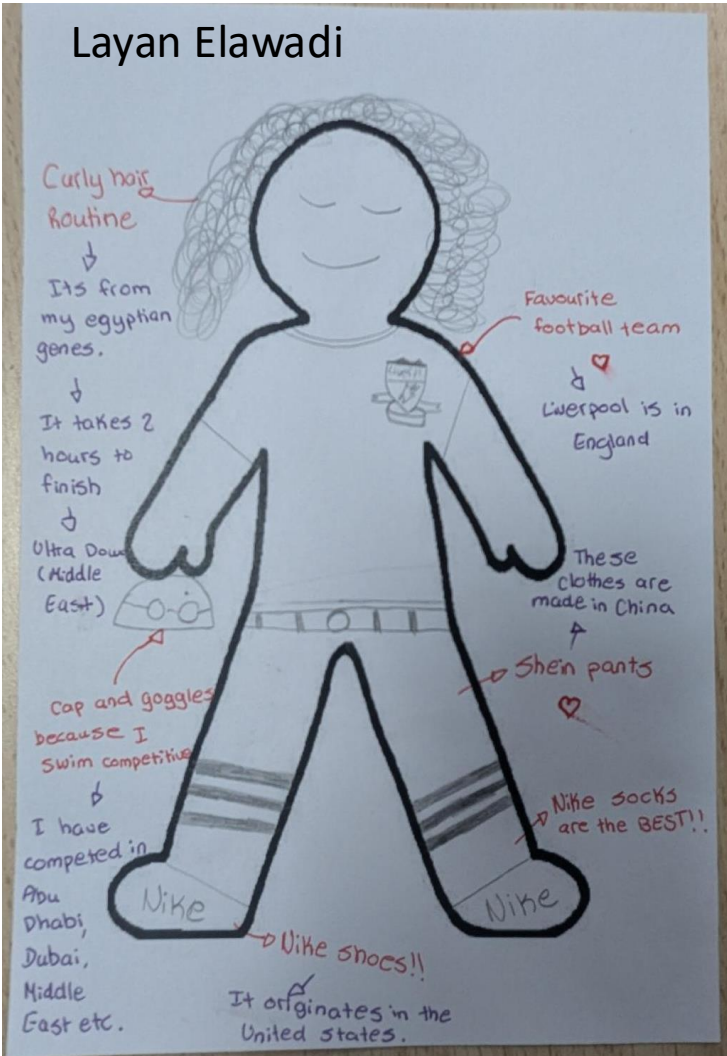 Layan Elawadi
Curly hair
Routine
Its from
my egyptian
genes.
It takes 2
hours to
finish
Ultra Dow
(Middle
East)
Cap and goggles
because I
swim competitive
I have
competed in
Abu
Dhabi,
Dubai,
Middle
East etc.
Favourite
football team
Liverpool is in
England
These
clothes are
made in China
Shein pants
Nike socks
are the BEST!!
Nike
Nike
Nike shoes!!
It originates in the
United states.